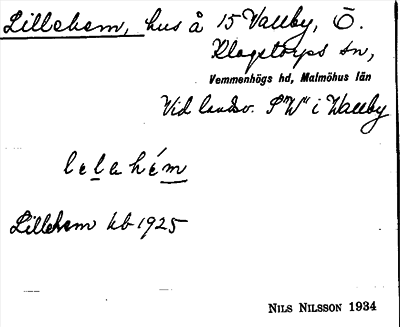 Lillehem, hus å 15 Vallby, Ö.
Klagstorps sn,
Vemmenhögs hd, Malmöhus län
Vid landsv. i Vallby
lelahém
Lillehem kb 1925
NILS NILSSON 1934